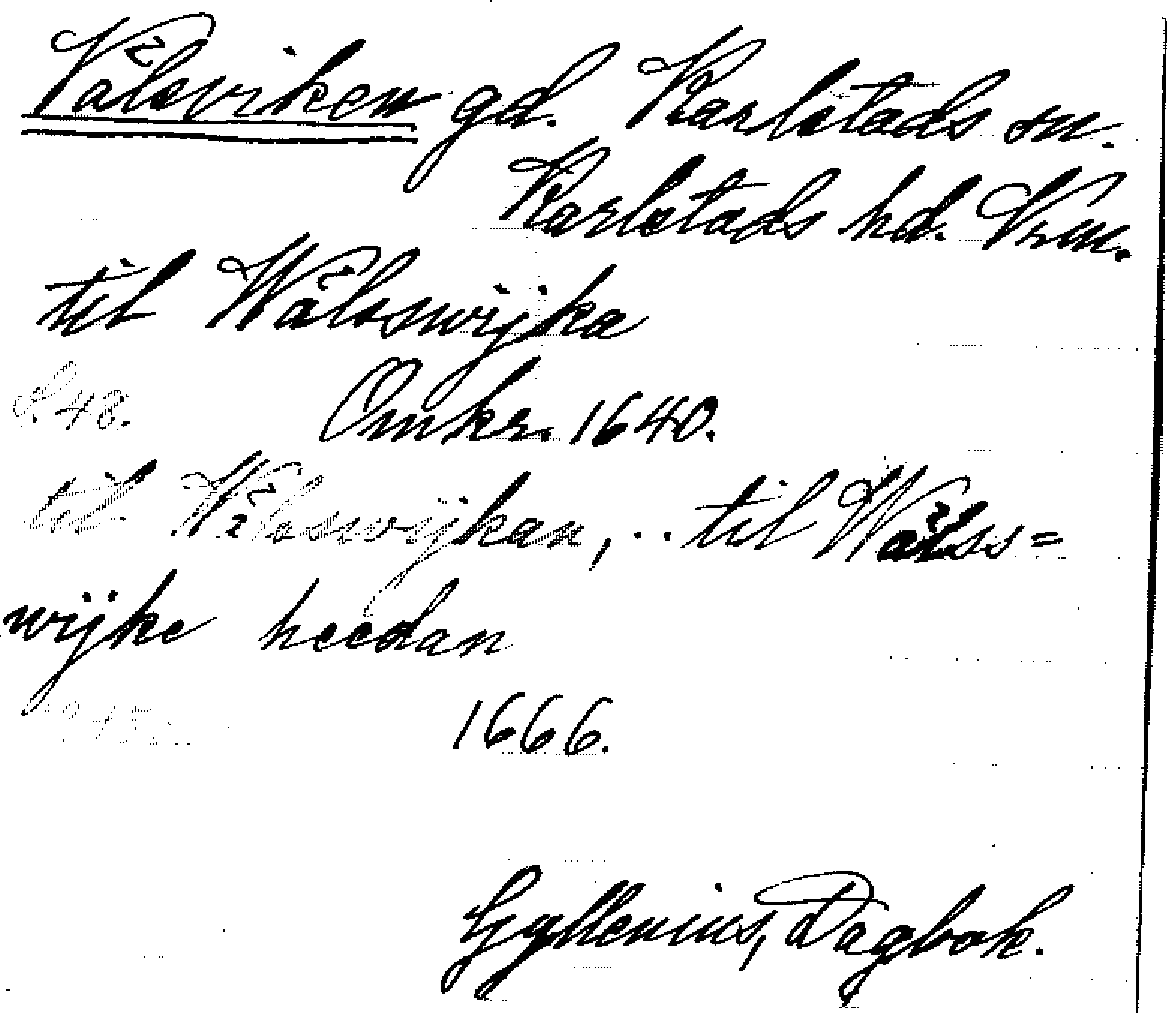 Vålsviken gd. Karlstads sn.
Karlstads hd. Vrm.
til Wålsswijka
S. 48. Omkr. 1640.
til Wålsswijkan, .. til Wålss=
wijke heedan
1666.
Gyllenius, Dagbok.